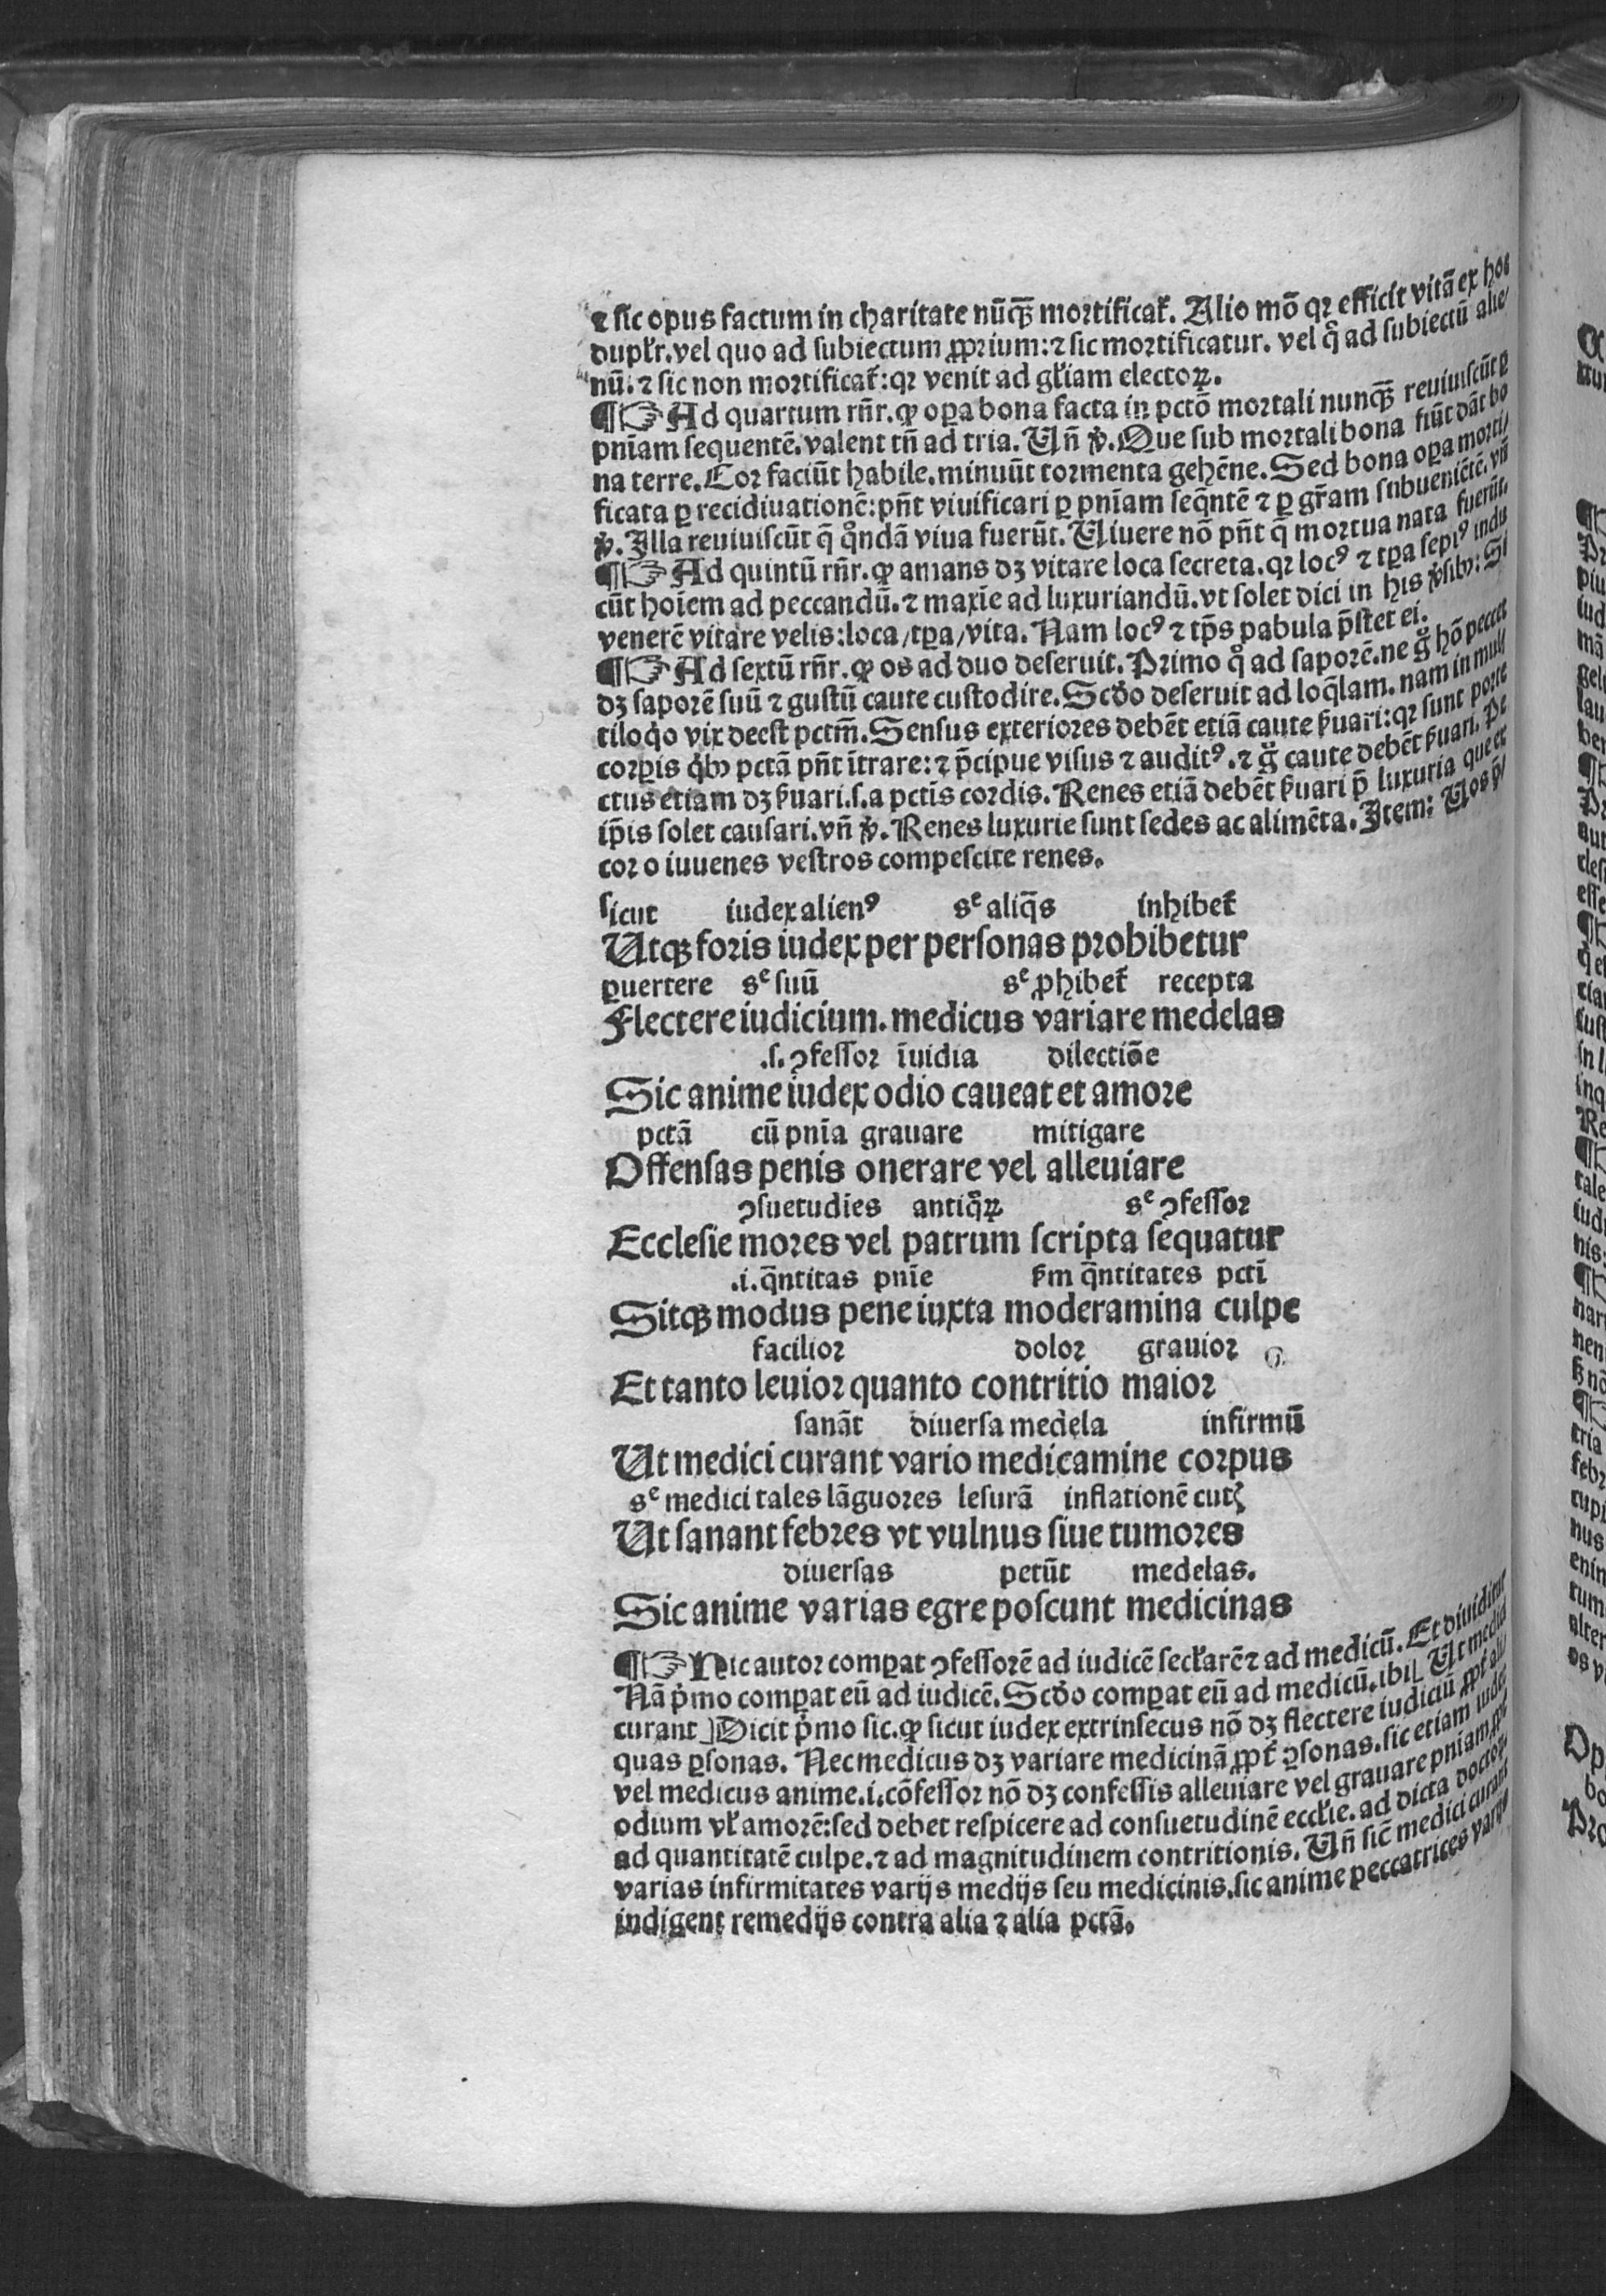 ⁊ sic opus factum in charitate nūq̄ꝫ mortificaꝉ. Alio mō qꝛ efficit vitā ex hoc
duplꝉr. vel quo ad subiectum ꝓprium: ⁊ sic mortificatur. vel qͦ ad subiectū alie/
nū. ⁊ sic non mortificaꝉ: qꝛ venit ad gꝉiam electoꝝ.
¶☞ Ad quartum rn̄r. ꝙ oꝑa bona facta in pctō mortali nunq̄ꝫ reuiuiscūt ꝑ
pn̄iam sequentē. valent tn̄ ad tria. Un̄ ꝟ. Que sub mortali bona fiūt dāt bo
na terre. Cor faciūt habile. minuūt tormenta gehēne. Sed bona oꝑa morti/
ficata ꝑ recidiuationē: pn̄t viuificari ꝑ pn̄iam seq̄ntē ⁊ ꝑ gr̄am subueniētē. vn̄
ꝟ. Illa reuiuiscūt q̄ qͦndā viua fuerūt. Uiuere nō pn̄t q̄ mortua nata fuerūt.
¶☞ Ad quintū rn̄r. ꝙ amans dꝫ vitare loca secreta. qꝛ locꝰ ⁊ tꝑa sepiꝰ indu
cūt hoīem ad peccandū. ⁊ maxīe ad luxuriandū. vt solet dici in his ꝟsibꝰ: Si
venerē vitare velis: loca/tꝑa/vita. Nam locꝰ ⁊ tp̄s pabula p̄stet ei.
¶☞ Ad sextū rn̄r. ꝙ os ad duo deseruit. Primo qͦ ad saporē. ne gͦ hō peccet
dꝫ saporē suū ⁊ gustū caute custodire. Scd̄o deseruit ad loq̄lam. nam in mul/
tiloqͦo vix deest pctm̄. Sensus exteriores debēt etiā caute ẜuari: qꝛ sunt porte
corꝑis qͥbꝰ pctā pn̄t ītrare: ⁊ p̄cipue visus ⁊ auditꝰ. ⁊ gͦ caute debēt ẜuari. Pe
ctus etiam dꝫ ẜuari. s. a pctīs cordis. Renes etiā debēt ẜuari p̄ luxuria que ex
ip̄is solet causari. vn̄ ꝟ. Renes luxurie sunt sedes ac alimēta. Item: Uos p̄/
cor o iuuenes vestros compescite renes.
sicut iudex alienꝰ sᵉ aliq̄s inhibeꝉ
Utqꝫ foris iudex per personas prohibetur
ꝑuertere sᵉ suū sᵉ ꝓhibeꝉ recepta
Flectere iudicium. medicus variare medelas
.s. ꝯfessor īuidia dilectiōe
Sic anime iudex odio caueat et amore
pctā cū pnīa grauare mitigare
Offensas penis onerare vel alleuiare
ꝯsuetudies antiqͦꝝ sᵉ ꝯfessor
Ecclesie mores vel patrum scripta sequatur
.i. q̄ntitas pnīe ẜm q̄ntitates pctī
Sitqꝫ modus pene iuxta moderamina culpe
facilior dolor grauior
Et tanto leuior quanto contritio maior
sanāt diuersa medela infirmū
Ut medici curant vario medicamine corpus
sᵉ medici tales lāguores lesurā inflationē cutꝭ
Ut sanant febres vt vulnus siue tumores
diuersas petūt medelas.
Sic anime varias egre poscunt medicinas
¶☞ Hic autor comꝑat ꝯfessorē ad iudicē secꝉarē ⁊ ad medicū. Et diuiditur
Nā pͥmo comꝑat eū ad iudicē. Scd̄o comꝑat eū ad medicū. ibi [Ut medici
curant] Dicit pͥmo sic. ꝙ sicut iudex extrinsecus nō dꝫ flectere iudiciū ꝓpꝉ ali/
quas ꝑsonas. Nec medicus dꝫ variare medicinā ꝓpꝉ ꝑsonas. sic etiam iudex
vel medicus anime. i. cōfessor nō dꝫ confessis alleuiare vel grauare pniam ꝓpꝉ
odium vꝉ amorē: sed debet respicere ad consuetudinē eccꝉie. ad dicta doctoꝝ.
ad quantitatē culpe. ⁊ ad magnitudinem contritionis. Un̄ sic̄ medici curant
varias infirmitates varijs medijs seu medicinis. sic anime peccatrices varijs
indigent remedijs contra alia ⁊ alia pctā.